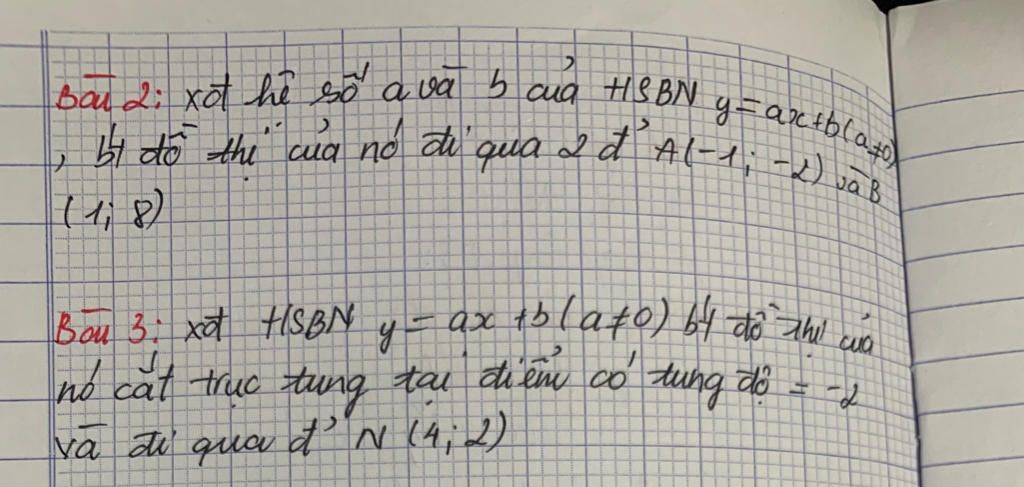 Bài 2: xđ hệ số a và b của HSBN y = ax+b (a≠0)
, bt đồ thị của nó đi qua 2 đ' A(-1; -2) và B
(1; 8)
Bài 3: xđ HSBN y = ax + b (a≠0) bt đồ thị của
nó cắt trục tung tại điểm có tung độ = -2
và đi qua đ' N (4; 2)